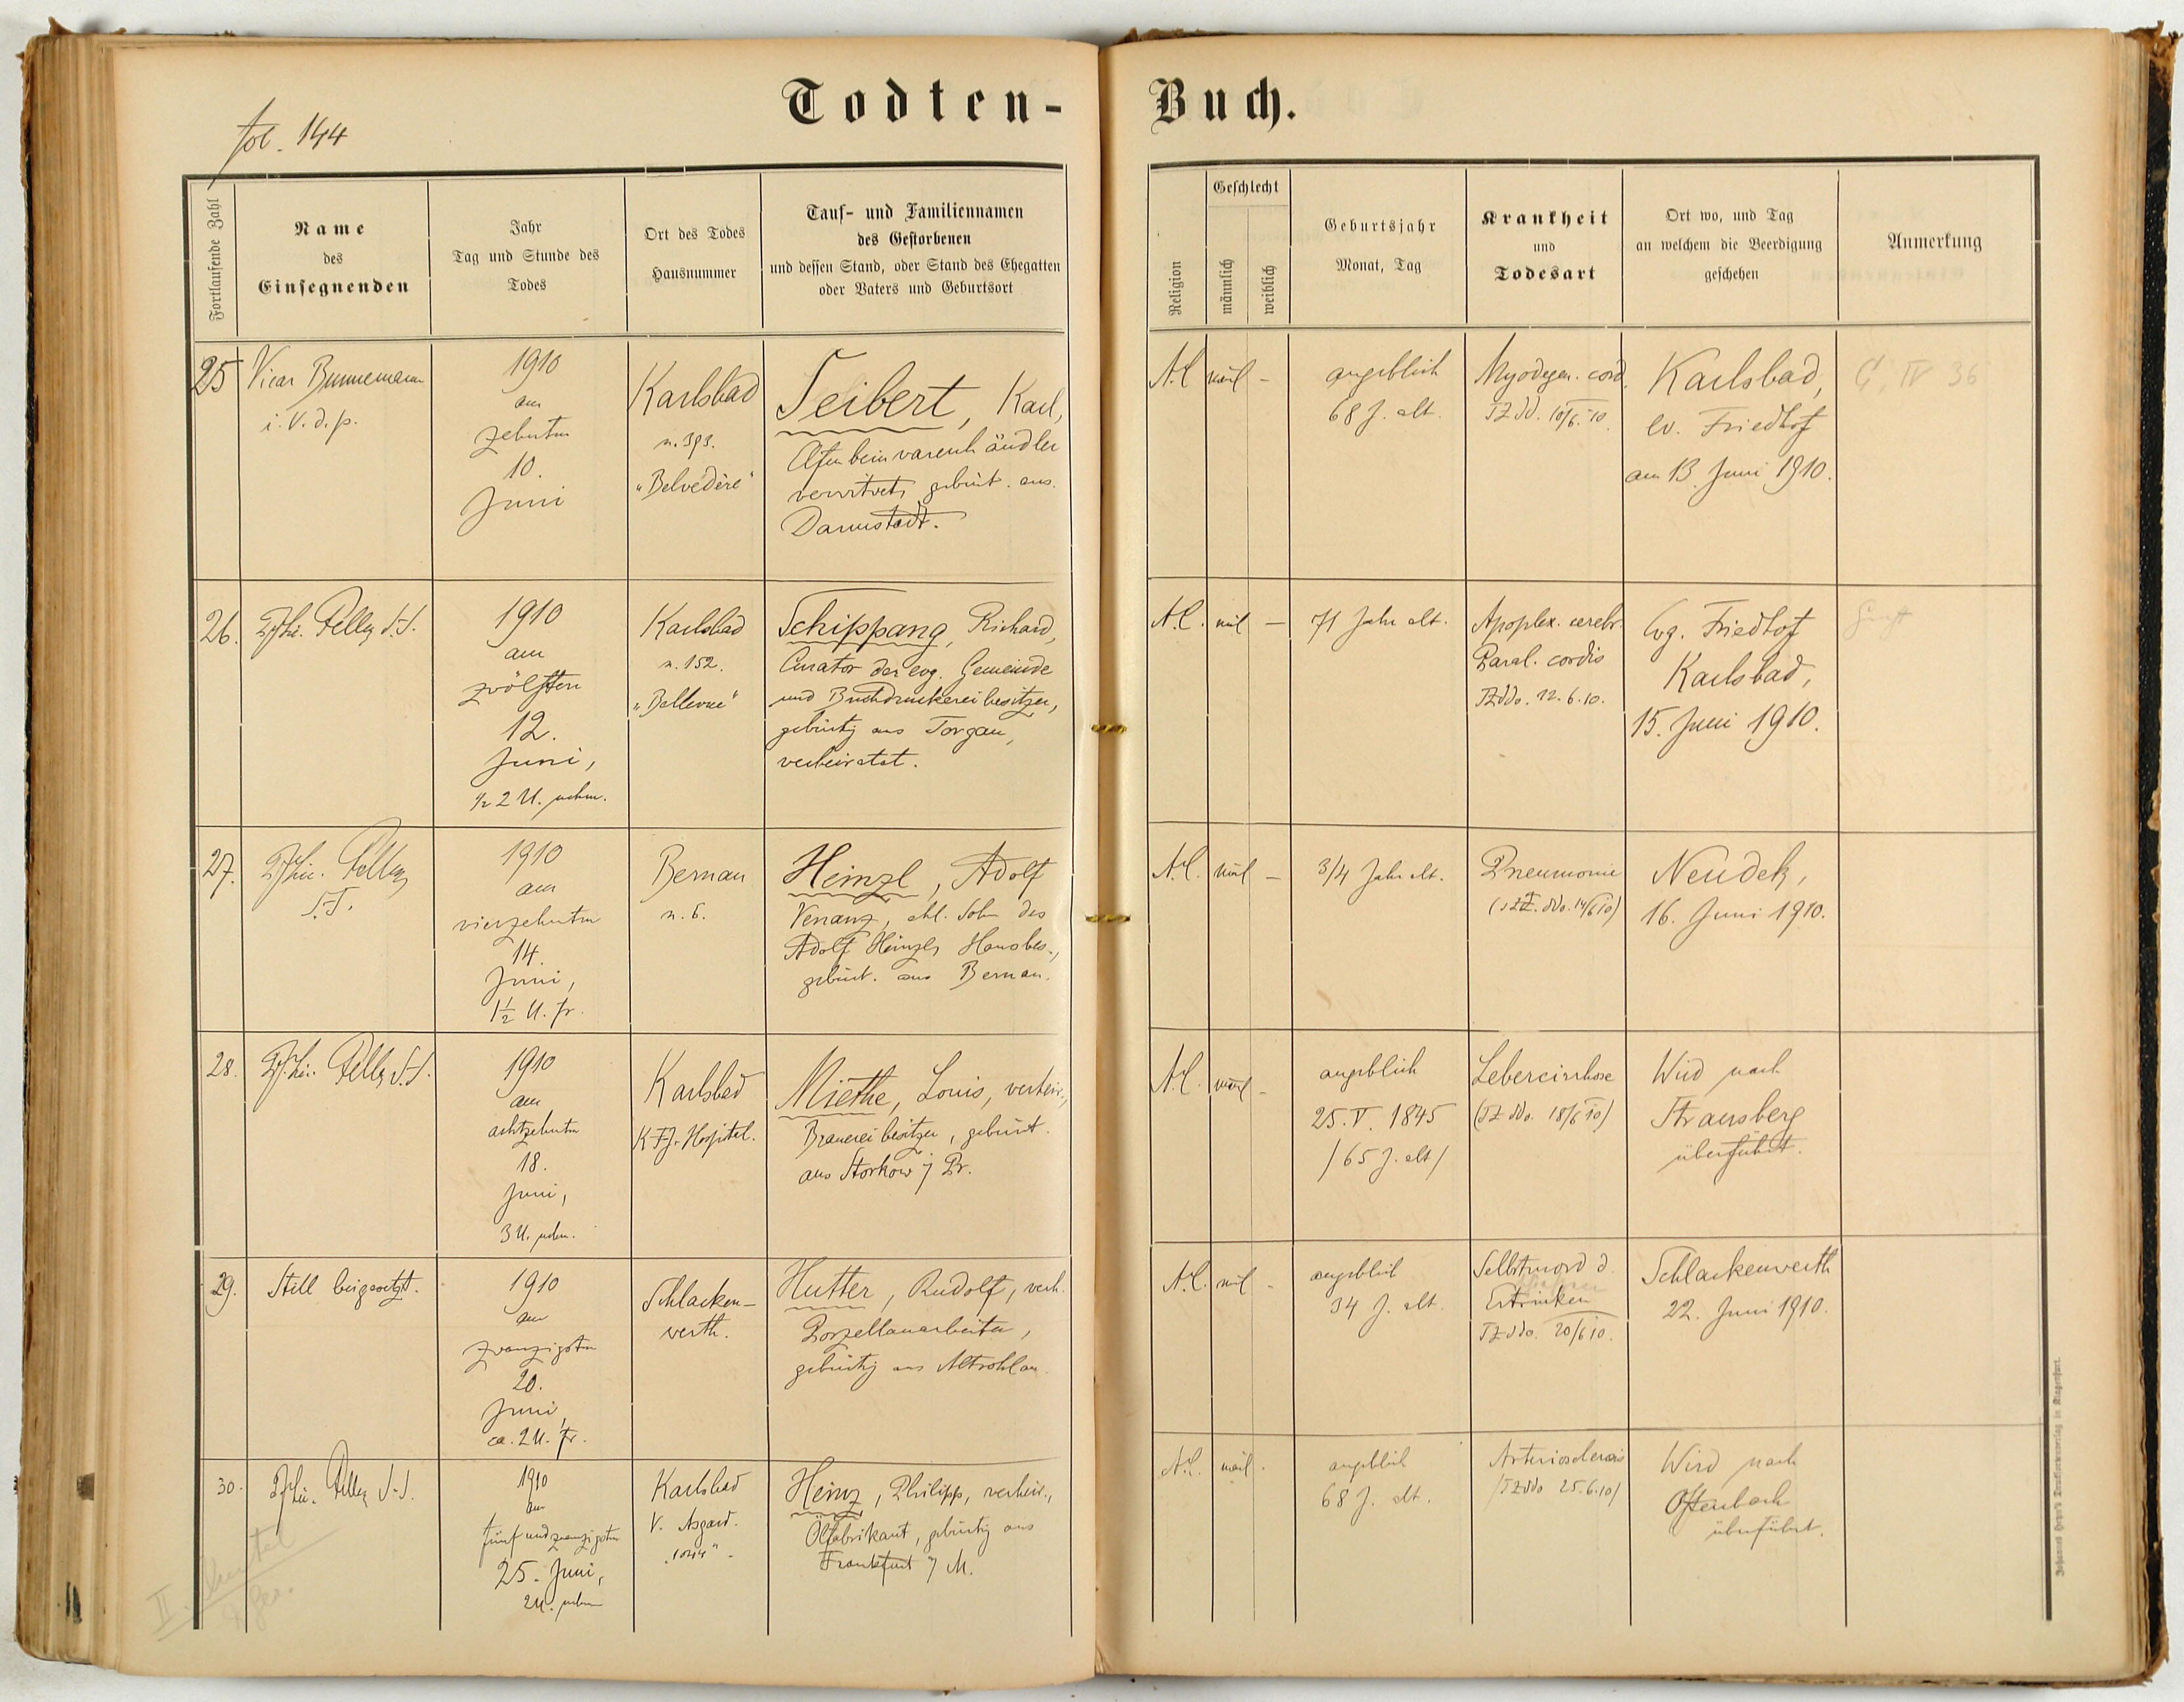 Todten-Buch.
fol. 144
Fortlaufende Zahl
Name
des
Einsegnenden
Jahr
Tag und Stunde des
Todes
Ort des Todes
Hausnummer
Tauf- und Familiennamen
des Gestorbenen
und dessen Stand, oder Stand des Ehegatten
oder Vaters und Geburtsort
Religion
Geschlecht
männlich
weiblich
Geburtsjahr
Monat, Tag
Krankheit
und
Todesart
Ort wo, und Tag
an welchem die Beerdigung
geschehen
Anmerkung
25
Vicar Bunnemann
i. V. d. p.
1910
am
zehnten
10.
Juni
Karlsbad
n. 393.
"Belvédère"
Seibert, Karl,
Elfenbeinwarenhändler
verwitwet, gebürt. aus
Darmstadt.
A.C.
männl
-
angeblich
68 J. alt.
Myodegen. cord.
TZ dd. 10/6.10.
Karlsbad,
ev. Friedhof
am 13. Juni 1910.
G, IV 36
26.
1910
am
zwölften
12.
Juni,
1/2 2 U. nchm.
Karlsbad
n. 152.
"Bellevue"
Schippang, Richard,
Curator der evg. Gemeinde
und Buchdruckereibesitzer,
gebürtig aus Torgau,
verheiratet.
A.C.
mnl
-
71 Jahr alt.
Apoplex. cerebr.
Paral. cordis
TZ ddo. 12.6.10.
Evg. Friedhof
Karlsbad,
15. Juni 1910.
27.
1910
am
vierzehnten
14.
Juni,
1 1/2 U. fr.
Bernau
n. 6.
Heinzl, Adolf
Venanz, ehl. Sohn des
Adolf Heinzl, Hausbes.,
gebürt. aus Bernau.
A.C.
mnl
-
3/4 Jahr alt.
Pneumonie
(TZ. ddo. 14/6 10)
Neudek,
16. Juni 1910.
28.
1910
am
achtzehnten
18.
Juni,
3 U. nchm.
Karlsbad
K-F-J-Hospital.
Miethe, Louis, verheir.,
Brauereibesitzer, gebürt.
aus Storkow i/ Pr.
A.C.
mnl
-
angeblich
25. V. 1845
/65 J. alt/
Lebercirrhose
(TZ ddo. 18/6 10)
Wird nach
Strausberg
überführt.
29.
Still beigesetzt.
1910
am
zwanzigsten
20.
Juni,
ca. 2 U. fr.
Schlacken-
werth.
Hutter, Rudolf, verh.
Porzellanarbeiter,
gebürtig aus Altrohlau
A.C.
mnl
-
angeblich
34 J. alt.
Selbstmord d.
Ertrinken
TZ ddo. 20/6 10.
Schlackenwerth
22. Juni 1910.
30.
1910
am
fünfundzwanzigsten
25. Juni,
2 U. nchm
Karlsbad
V. Asgard.
"1044".
Heinz, Philipp, verheir.,
Ölfabrikant, gebürtig aus
Frankfurt / M.
A.C.
männl
.
angeblich
68 J. alt.
Arteriosclerosis
(TZ ddo 25.6.10)
Wird nach
Offenbach
überführt.
II.